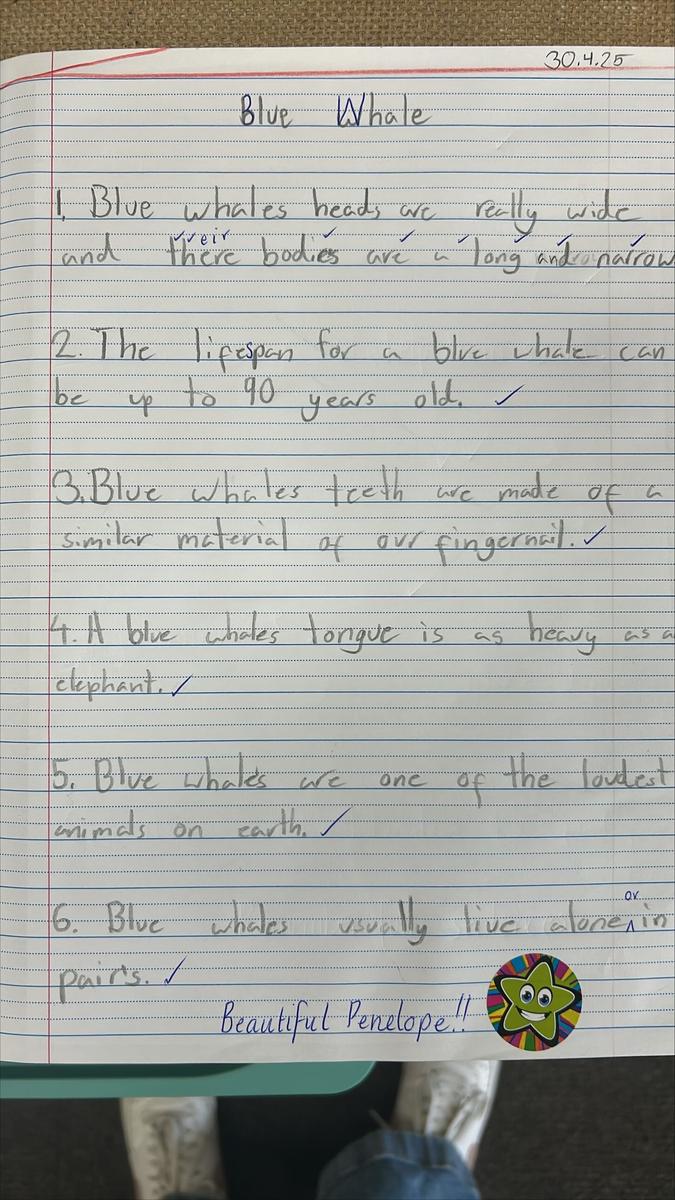 30.4.25
Blue Whale
1. Blue whales heads are really wide
eir
and there bodies are a long and narrow
2. The lifespan for a blue whale can
be up to 90 years old. ✓
3. Blue whales teeth are made of a
similar material of our fingernail. ✓
4. A blue whales tongue is as heavy as a
elephant. ✓
5. Blue whales are one of the loudest
animals on earth. ✓
or
6. Blue whales usually live alone, in
pairs. ✓
Beautiful Penelope!!